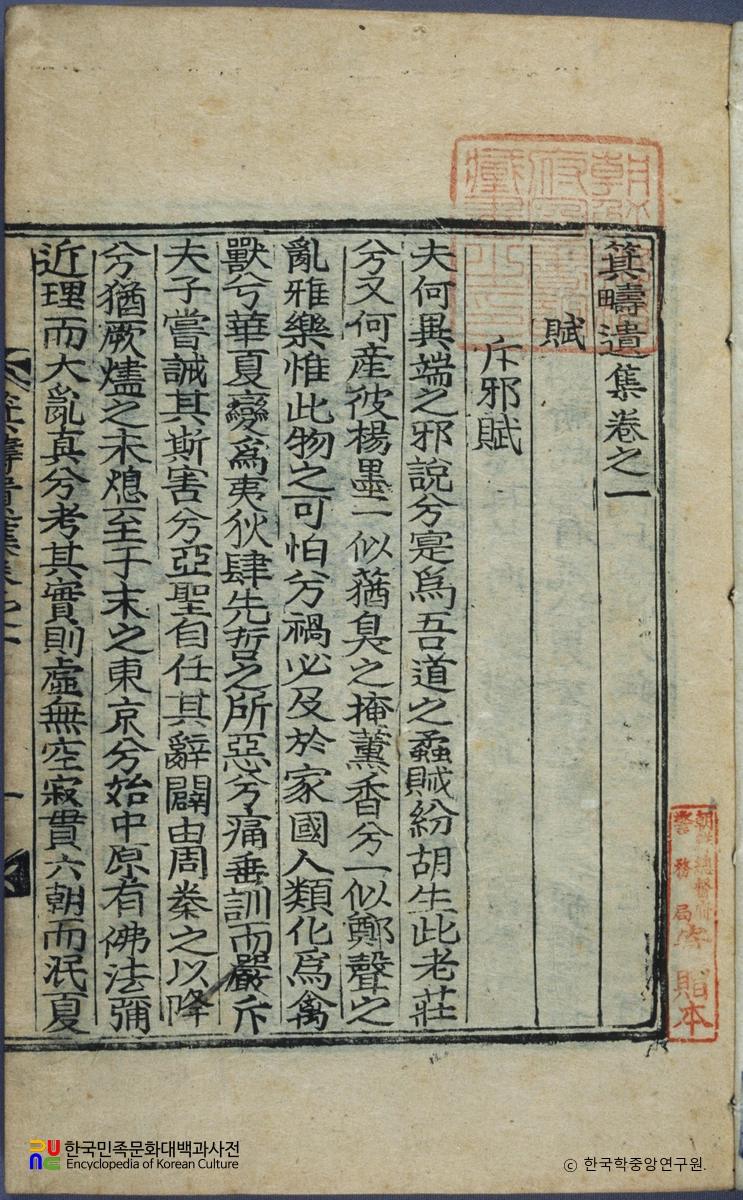 箕疇遺集卷之一
賦
斥邪賦
夫何異端之邪說兮寔爲吾道之蟊賊紛胡生此老莊
兮又何産彼楊墨一似蕕臭之掩薰香兮一似鄭聲之
亂雅樂惟此物之可怕兮禍必及於家國人類化爲禽
獸兮華夏變爲夷狄肆先哲之所惡兮痛垂訓而嚴斥
夫子嘗誡其斯害兮亞聖自任其辭闢由周秦之以降
兮猶厥燼之未熄至于末之東京兮始中原有佛法彌
近理而大亂真兮考其實則虛無空寂貫六朝而泯夏
朝鮮總督府
警務局
寄贈本
한국민족문화대백과사전
Encyclopedia of Korean Culture
© 한국학중앙연구원.